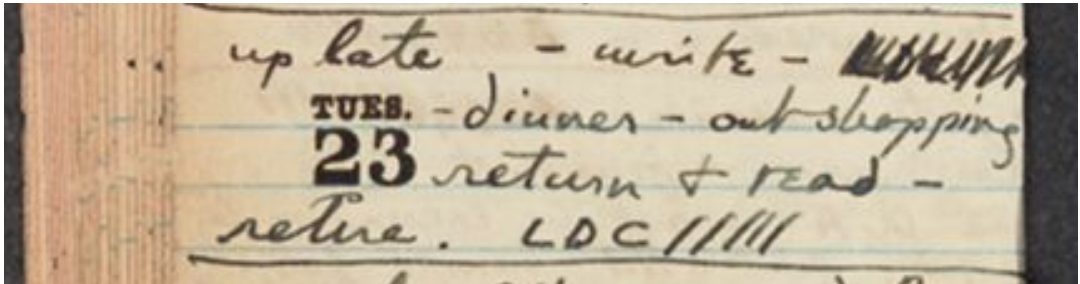 up late - write -
TUES. - dinner - out shopping
23 return + read -
retire. LDC /////